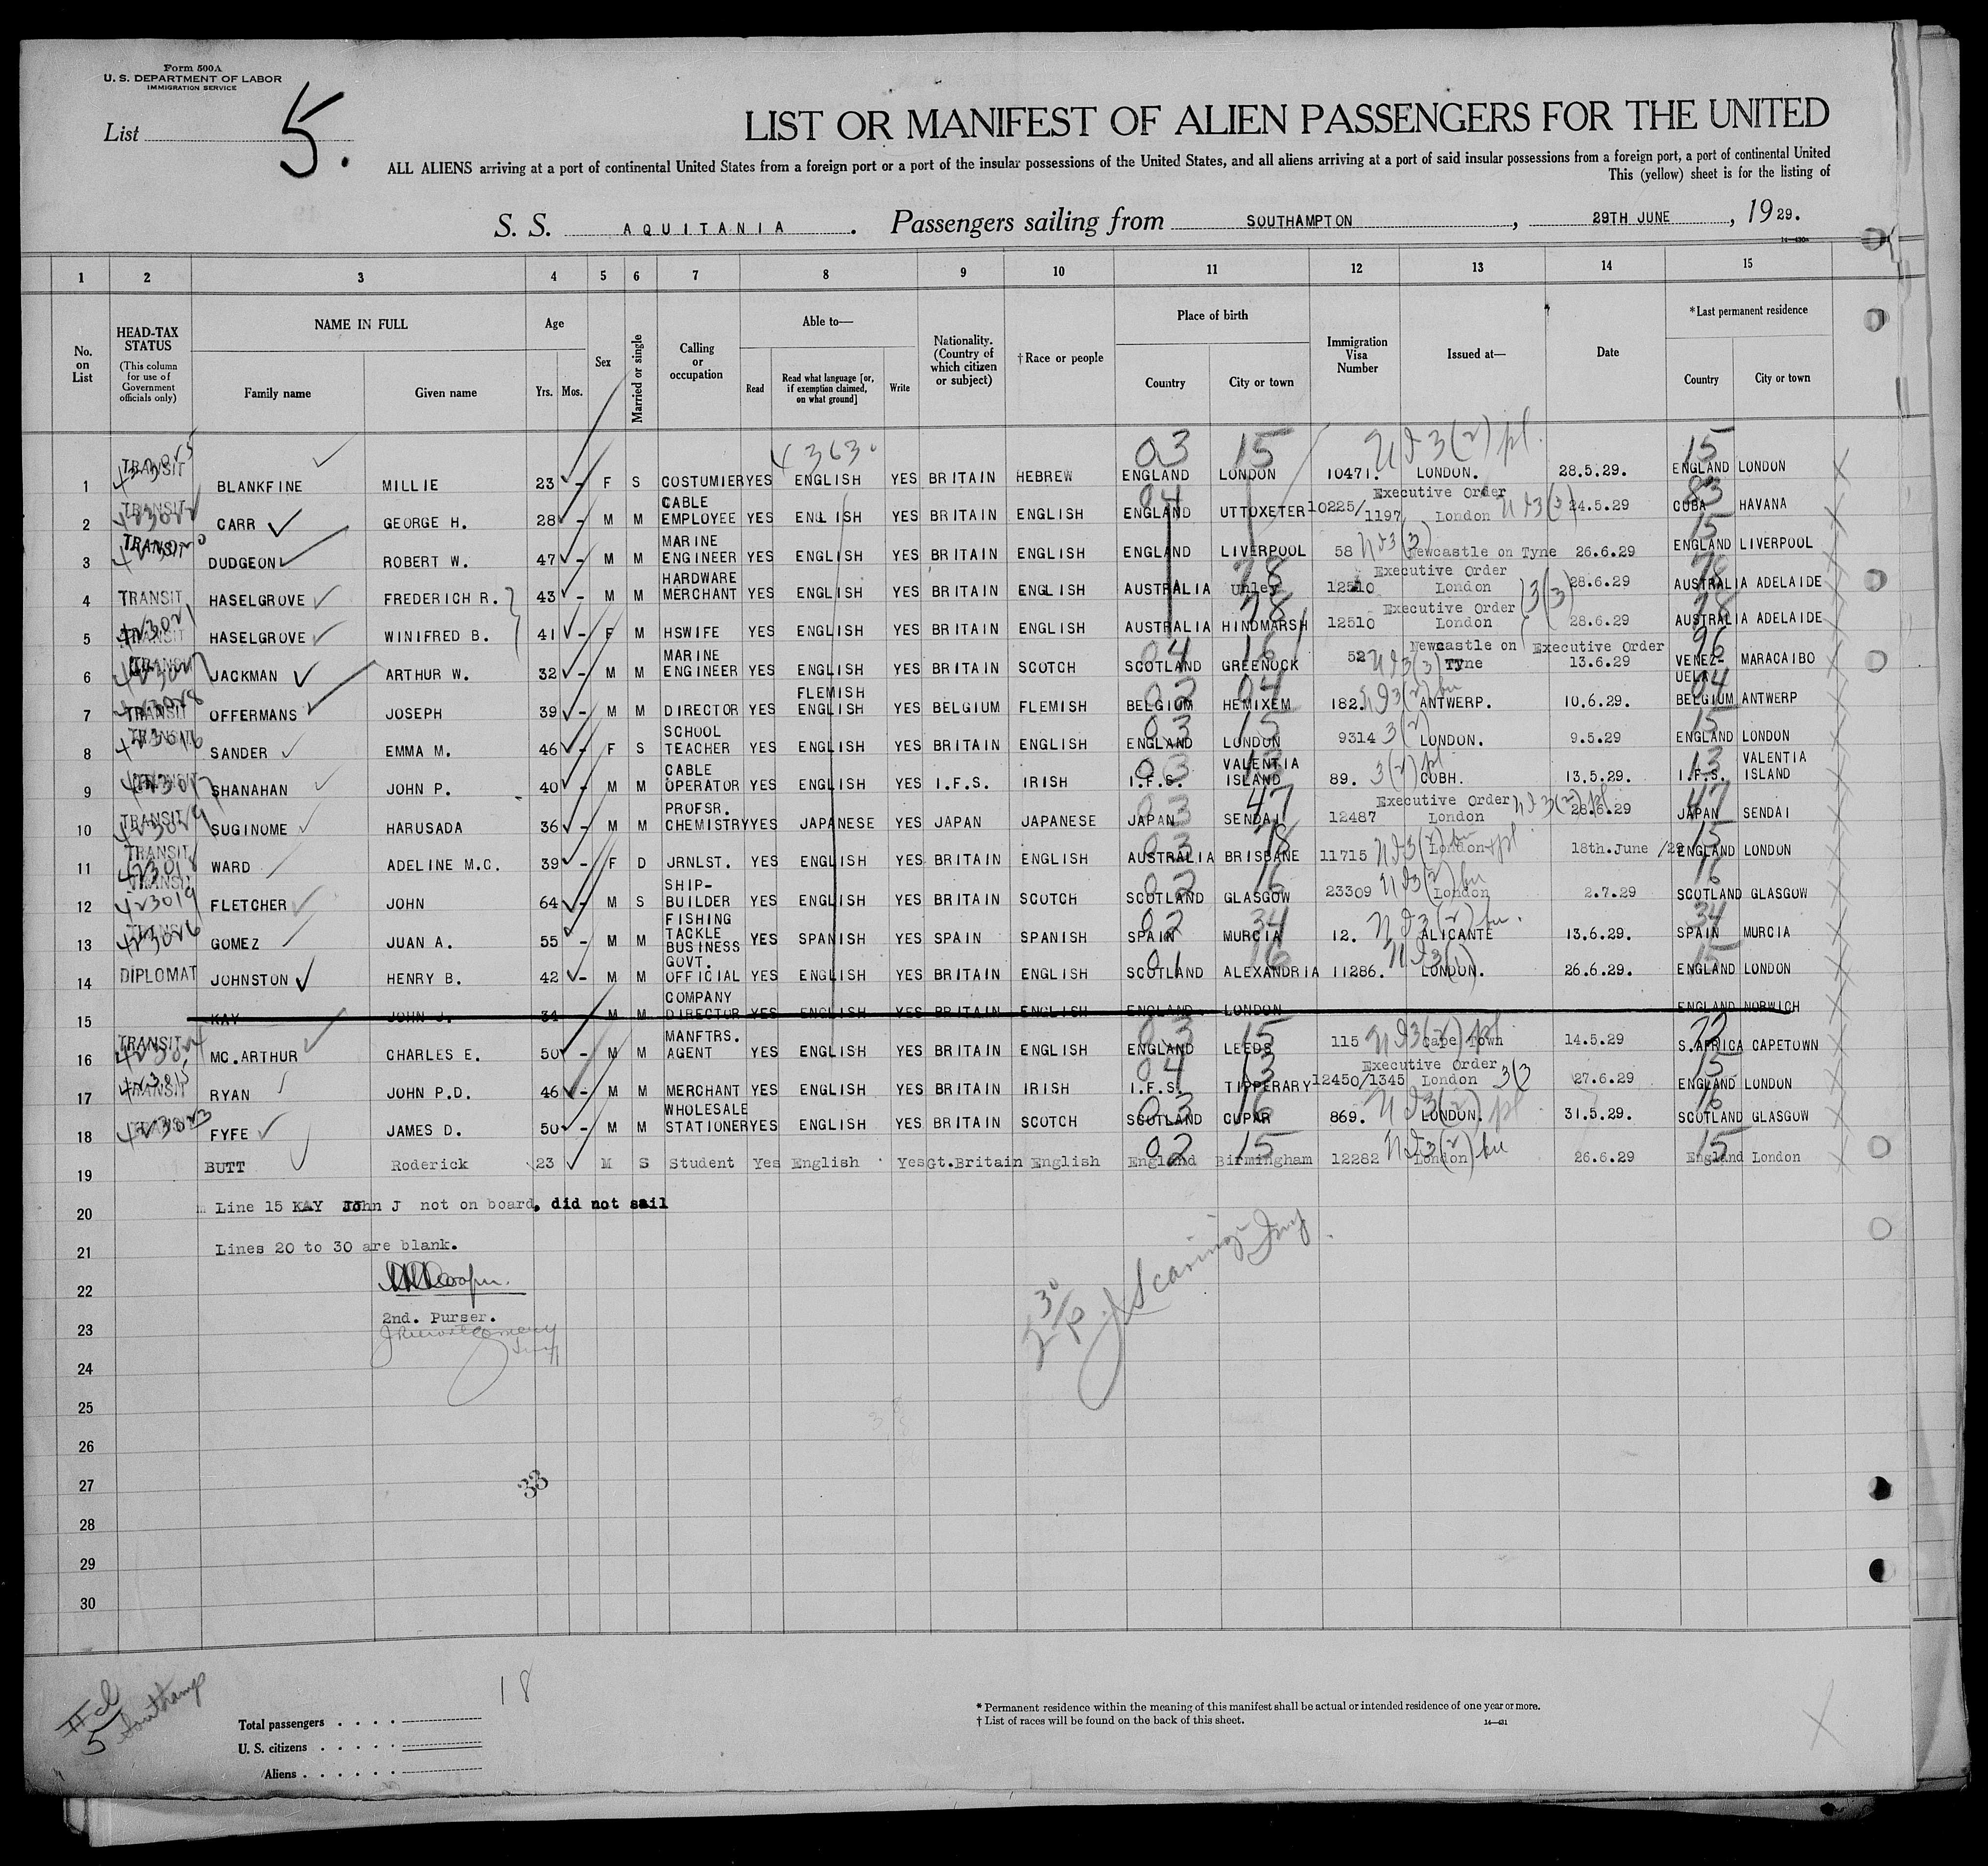 Form 500A
U. S. DEPARTMENT OF LABOR
IMMIGRATION SERVICE
List 5.
LIST OR MANIFEST OF ALIEN PASSENGERS FOR THE UNITED
ALL ALIENS arriving at a port of continental United States from a foreign port or a port of the insular possessions of the United States, and all aliens arriving at a port of said insular possessions from a foreign port, a port of continental United
This (yellow) sheet is for the listing of
S. S. AQUITANIA. Passengers sailing from SOUTHAMPTON, 29TH JUNE, 1929.
1 2 3 4 5 6 7 8 9 10 11 12 13 14 15
No. on List
HEAD-TAX STATUS
(This column for use of Government officials only)
NAME IN FULL
Family name Given name
Age
Yrs. Mos.
Sex
Married or single
Calling or occupation
Able to—
Read Read what language [or, if exemption claimed, on what ground] Write
Nationality. (Country of which citizen or subject)
† Race or people
Place of birth
Country City or town
Immigration Visa Number
Issued at—
Date
* Last permanent residence
Country City or town
1 TRANSIT BLANKFINE MILLIE 23 - F S COSTUMIER YES ENGLISH YES BRITAIN HEBREW ENGLAND LONDON 10471. LONDON. 28.5.29. ENGLAND LONDON
2 TRANSIT CARR GEORGE H. 28 - M M CABLE EMPLOYEE YES ENGLISH YES BRITAIN ENGLISH ENGLAND UTTOXETER 10225/1197 Executive Order London 24.5.29 CUBA HAVANA
3 TRANSIT DUDGEON ROBERT W. 47 - M M MARINE ENGINEER YES ENGLISH YES BRITAIN ENGLISH ENGLAND LIVERPOOL 58 Newcastle on Tyne 26.6.29 ENGLAND LIVERPOOL
4 TRANSIT HASELGROVE FREDERICH R. 43 - M M HARDWARE MERCHANT YES ENGLISH YES BRITAIN ENGLISH AUSTRALIA Unley 12510 Executive Order London 28.6.29 AUSTRALIA ADELAIDE
5 TRANSIT HASELGROVE WINIFRED B. 41 - F M HSWIFE YES ENGLISH YES BRITAIN ENGLISH AUSTRALIA HINDMARSH 12510 Executive Order London 28.6.29 AUSTRALIA ADELAIDE
6 TRANSIT JACKMAN ARTHUR W. 32 - M M MARINE ENGINEER YES ENGLISH YES BRITAIN SCOTCH SCOTLAND GREENOCK 52 Newcastle on Tyne Executive Order 13.6.29 VENEZ-UELA MARACAIBO
7 TRANSIT OFFERMANS JOSEPH 39 - M M DIRECTOR YES FLEMISH ENGLISH YES BELGIUM FLEMISH BELGIUM HEMIXEM 182. ANTWERP. 10.6.29. BELGIUM ANTWERP
8 TRANSIT SANDER EMMA M. 46 - F S SCHOOL TEACHER YES ENGLISH YES BRITAIN ENGLISH ENGLAND LONDON 9314 LONDON. 9.5.29 ENGLAND LONDON
9 SHANAHAN JOHN P. 40 - M M CABLE OPERATOR YES ENGLISH YES I.F.S. IRISH I.F.S. VALENTIA ISLAND 89. COBH. 13.5.29. I.F.S. VALENTIA ISLAND
10 TRANSIT SUGINOME HARUSADA 36 - M M PROFSR. CHEMISTRY YES JAPANESE YES JAPAN JAPANESE JAPAN SENDAI 12487 Executive Order London 28.6.29 JAPAN SENDAI
11 TRANSIT WARD ADELINE M.C. 39 - F D JRNLST. YES ENGLISH YES BRITAIN ENGLISH AUSTRALIA BRISBANE 11715 London 18th.June /29 ENGLAND LONDON
12 TRANSIT FLETCHER JOHN 64 - M S SHIP-BUILDER YES ENGLISH YES BRITAIN SCOTCH SCOTLAND GLASGOW 23309 London 2.7.29 SCOTLAND GLASGOW
13 GOMEZ JUAN A. 55 - M M FISHING TACKLE BUSINESS YES SPANISH YES SPAIN SPANISH SPAIN MURCIA 12. ALICANTE 13.6.29. SPAIN MURCIA
14 DIPLOMAT JOHNSTON HENRY B. 42 - M M GOVT. OFFICIAL YES ENGLISH YES BRITAIN ENGLISH SCOTLAND ALEXANDRIA 11286. LONDON. 26.6.29. ENGLAND LONDON
15 KAY JOHN J. 34 M M COMPANY DIRECTOR YES ENGLISH YES BRITAIN ENGLISH ENGLAND LONDON ENGLAND NORWICH
16 TRANSIT MC.ARTHUR CHARLES E. 50 - M M MANFTRS. AGENT YES ENGLISH YES BRITAIN ENGLISH ENGLAND LEEDS 115 Cape Town 14.5.29 S.AFRICA CAPETOWN
17 TRANSIT RYAN JOHN P.D. 46 - M M MERCHANT YES ENGLISH YES BRITAIN IRISH I.F.S. TIPPERARY 12450/1345 Executive Order London 27.6.29 ENGLAND LONDON
18 FYFE JAMES D. 50 - M M WHOLESALE STATIONER YES ENGLISH YES BRITAIN SCOTCH SCOTLAND CUPAR 869. LONDON. 31.5.29. SCOTLAND GLASGOW
19 BUTT Roderick 23 M S Student Yes English Yes Gt.Britain English England Birmingham 12282 London 26.6.29 England London
20 Line 15 KAY John J not on board, did not sail
21 Lines 20 to 30 are blank.
22
2nd. Purser.
23
24
25
26
27
33
28
29
30
18
Total passengers
U. S. citizens
Aliens
* Permanent residence within the meaning of this manifest shall be actual or intended residence of one year or more.
† List of races will be found on the back of this sheet.
14—431